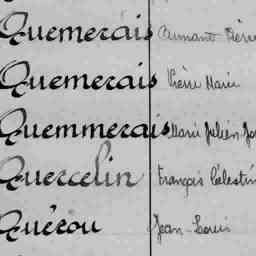 Quemerais Armand Pierre
Quemerais Pierre Marie
Quemmerais Marie Julien
Quercelin François Célestin
Quérou Jean Louis